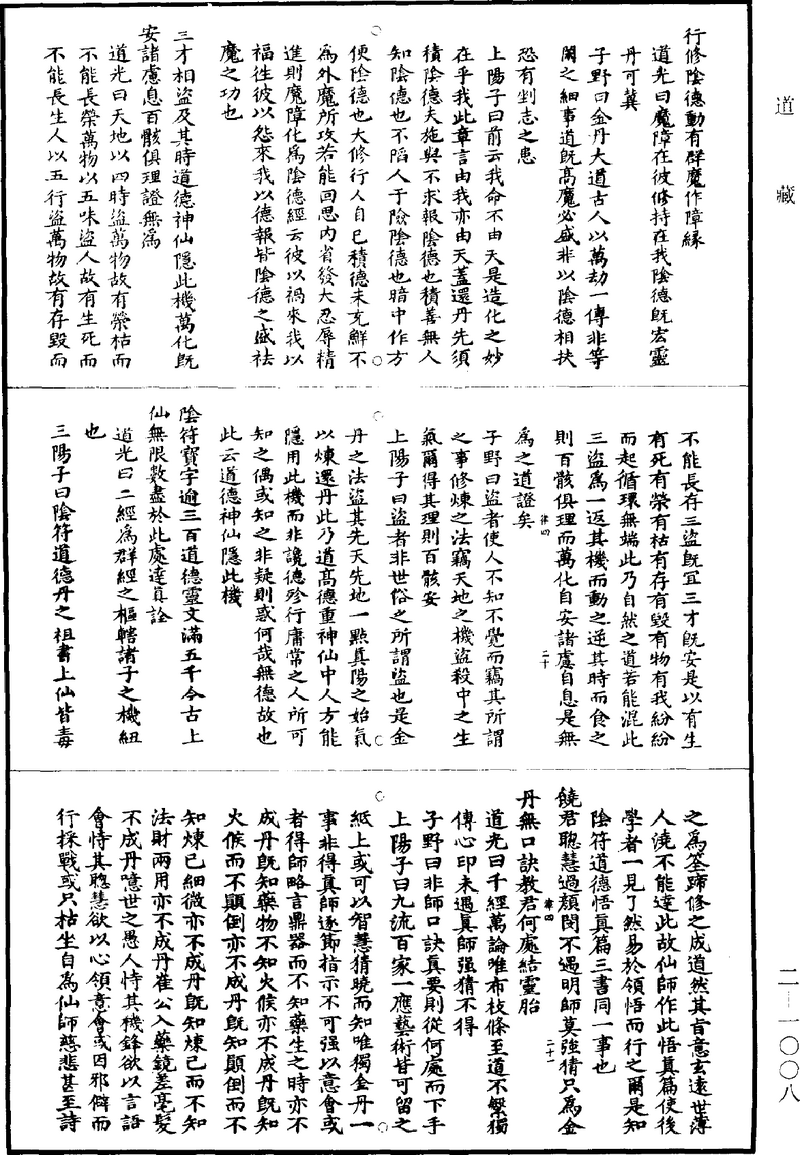 道藏
行修陰德動有群魔作障緣
道光曰魔障在彼修持在我陰德既宏靈
丹可冀
子野曰金丹大道古人以萬劫一傳非等
閑之細事道既高魔必盛非以陰德相扶
恐有剉志之患
上陽子曰前云我命不由天是造化之妙
在乎我此章言由我亦由天蓋還丹先須
積陰德夫施與不求報陰德也積善無人
知陰德也不陷人于險陰德也暗中作方
便陰德也大修行人自己積德未充鮮不
為外魔所攻若能回思內省發大忍辱精
進則魔障化為陰德經云彼以禍來我以
福往彼以怨來我以德報皆陰德之盛祛
魔之功也
三才相盜及其時道德神仙隱此機萬化既
安諸慮息百骸俱理證無為
道光曰天地以四時盜萬物故有榮枯而
不能長榮萬物以五味盜人故有生死而
不能長生人以五行盜萬物故有存毀而
不能長存三盜既宜三才既安是以有生
有死有榮有枯有存有毀有物有我紛紛
而起循環無端此乃自然之道若能混此
三盜為一返其機而動之逆其時而食之
則百骸俱理而萬化自安諸慮自息是無
為之道證矣
律四
二十
子野曰盜者使人不知不覺而竊其所謂
之事修煉之法竊天地之機盜殺中之生
氣爾得其理則百骸安
上陽子曰盜者非世俗之所謂盜也是金
丹之法盜其先天先地一點真陽之始氣
以煉還丹此乃道高德重神仙中人方能
隱用此機而非讒德殄行庸常之人所可
知之偶或知之非疑則惑何哉無德故也
此云道德神仙隱此機
陰符寶字逾三百道德靈文滿五千今古上
仙無限數盡於此處達真詮
道光曰二經為群經之樞轄諸子之機紐
也
三陽子曰陰符道德丹之祖書上仙皆毒
之為筌蹄修之成道然其旨意玄遠世薄
人澆不能達此故仙師作此悟真篇使後
學者一見了然易於領悟而行之爾是知
陰符道德悟真篇三書同一事也
饒君聰慧過顏閔不遇明師莫強猜只為金
丹無口訣教君何處結靈胎
律四
二十一
道光曰千經萬論唯布枝條至道不繁獨
傳心印未遇真師强猜不得
子野曰非師口訣真要則從何處而下手
上陽子曰九流百家一應藝術皆可留之
紙上或可以智慧猜曉而知唯獨金丹一
事非得真師逐節指示不可强以意會或
者得師略言鼎器而不知藥生之時亦不
成丹既知藥物不知火候亦不成丹既知
火候而不顛倒亦不成丹既知顛倒而不
知煉己細微亦不成丹既知煉己而不知
法財兩用亦不成丹崔公入藥鏡差毫髮
不成丹噫世之愚人恃其機鋒欲以言語
會恃其聰慧欲以心領意會或因邪僻而
行採戰或只枯坐自為仙師慈悲甚至詩
二—一〇〇八